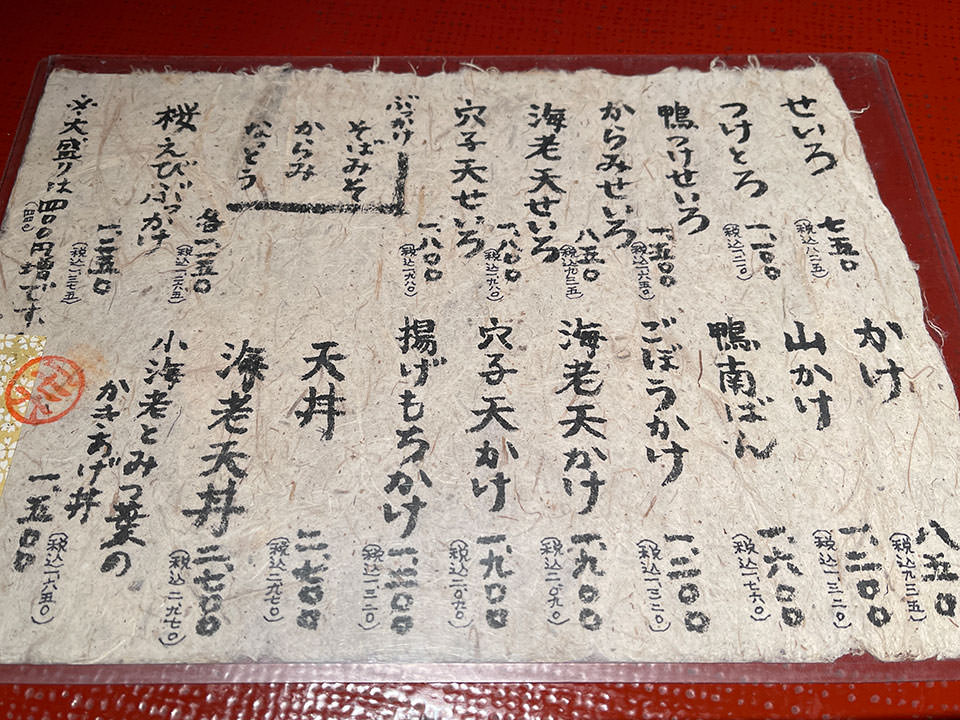 せいろ 七五〇
(税込八二五)
つけとろ 一、一〇〇
(税込一、二一〇)
鴨つけせいろ 一、五〇〇
(税込一、六五〇)
からみせいろ 八五〇
(税込九三五)
海老天せいろ 一、八〇〇
(税込一、九八〇)
穴子天せいろ 一、八〇〇
(税込一、九八〇)
ぶっかけ
そばみそ
からみ
なっとう
各一、一五〇
(税込一、二六五)
桜えびぶっかけ 一、二五〇
(税込一、三七五)
※大盛りは四〇〇円増です。
(四四〇)
かけ 八五〇
(税込九三五)
山かけ 一、二〇〇
(税込一、三二〇)
鴨南ばん 一、六〇〇
(税込一、七六〇)
ごぼうかけ 一、二〇〇
(税込一、三二〇)
海老天かけ 一、九〇〇
(税込二、〇九〇)
穴子天かけ 一、九〇〇
(税込二、〇九〇)
揚げもちかけ 一、二〇〇
(税込一、三二〇)
天丼 二、七〇〇
(税込二、九七〇)
海老天丼 二、七〇〇
(税込二、九七〇)
小海老とみつ葉の
かきあげ丼 一、五〇〇
(税込一、六五〇)